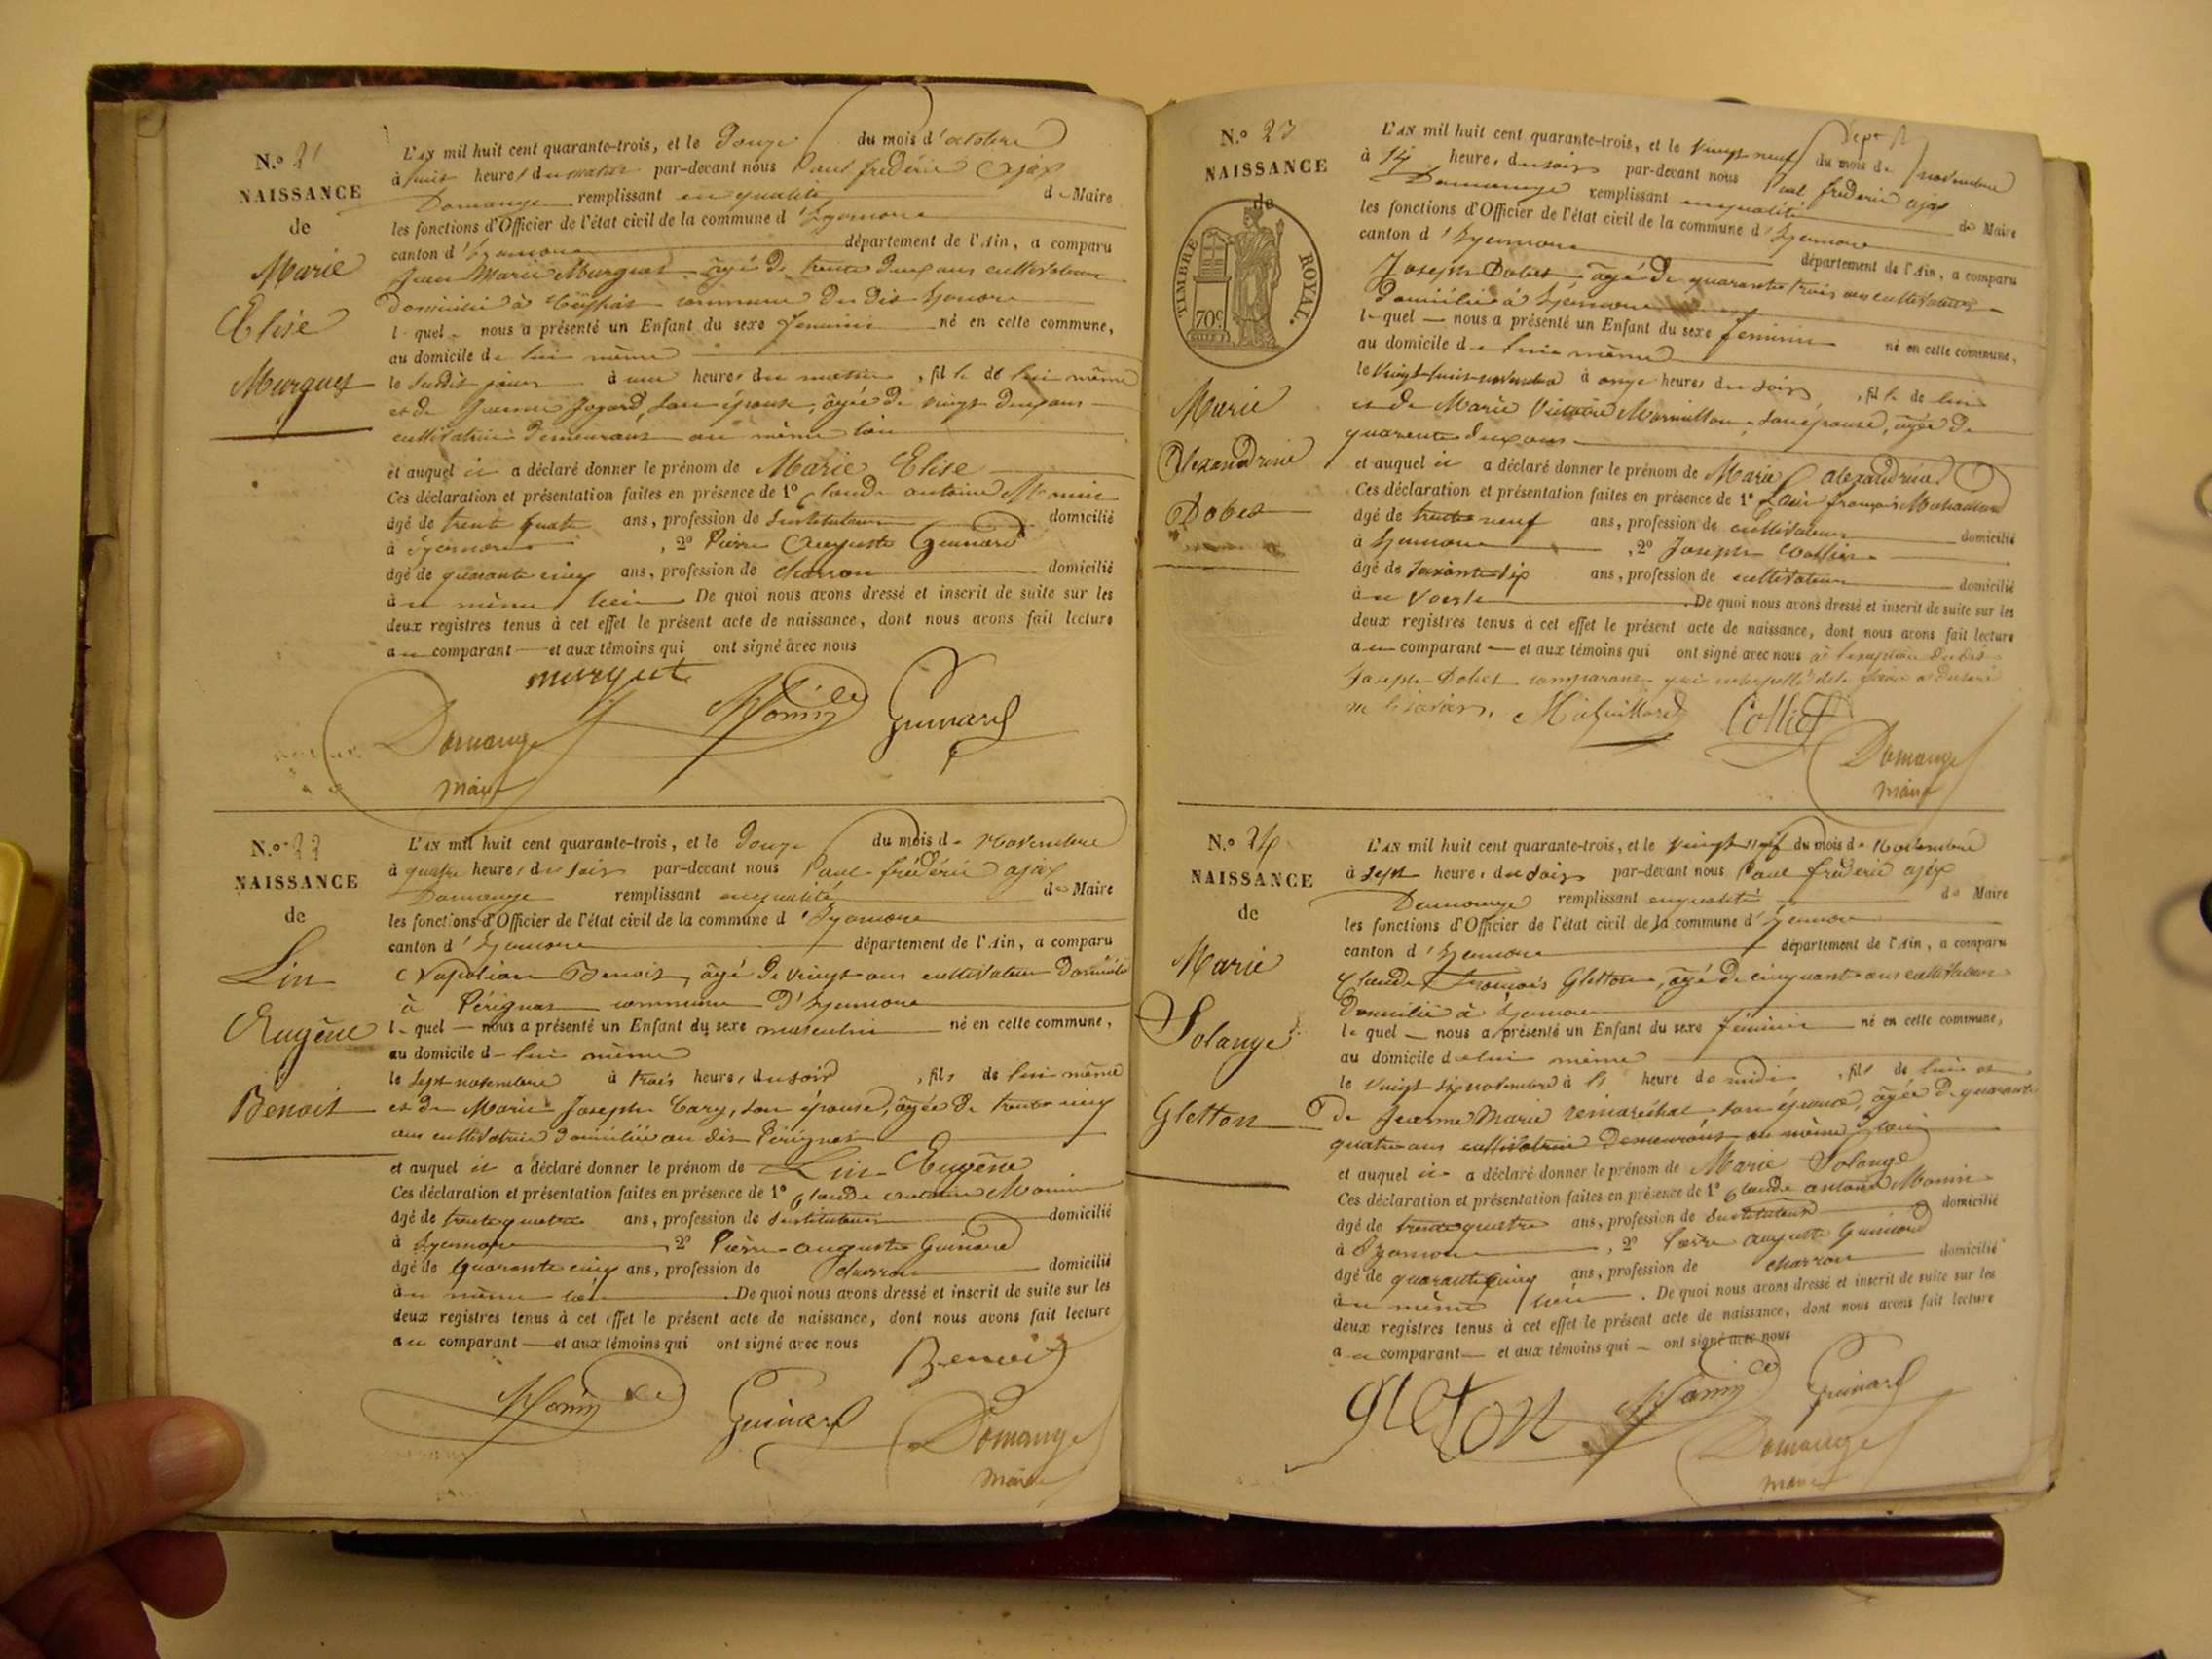 N.o 21
NAISSANCE
de
Marie
Elise
Murguet
L'AN mil huit cent quarante-trois, et le Douze du mois d'octobre
à huit heures du matin par-devant nous Paul frédéric Ajax
Domange remplissant en qualité de Maire
les fonctions d'Officier de l'état civil de la commune d'Izernore
canton d'Izernore département de l'Ain, a comparu
Jean Marie Murguet âgé de trente deux ans cultivateur
Domicilié à commune du dit Izernore
lequel nous a présenté un Enfant du sexe feminin né en cette commune,
au domicile de lui même
le susdit jour à une heure du matin, fille de lui même
et de Jeanne Jogard, son épouse, âgée de vingt deux ans
cultivatrice demeurant au même lieu
et auquel il a déclaré donner le prénom de Marie Elise
Ces déclaration et présentation faites en présence de 1º Claude antoine Monin
âgé de trente quatre ans, profession de Instituteur domicilié
à Izernore, 2º Pierre Auguste Guinard
âgé de quarante cinq ans, profession de charron domicilié
au même lieu De quoi nous avons dressé et inscrit de suite sur les
deux registres tenus à cet effet le présent acte de naissance, dont nous avons fait lecture
au comparant et aux témoins qui ont signé avec nous
murguet
Domange Monin Guinard
maire
N.o 22
NAISSANCE
de
Lin
Eugène
Benoit
L'AN mil huit cent quarante-trois, et le Douze du mois de Novembre
à quatre heures du soir par-devant nous Paul frédéric ajax
Domange remplissant en qualité de Maire
les fonctions d'Officier de l'état civil de la commune d'Izernore
canton d'Izernore département de l'Ain, a comparu
Napoléon Benoit, âgé de vingt ans cultivateur Domicilié
à Pérignat commune d'Izernore
lequel nous a présenté un Enfant du sexe masculin né en cette commune,
au domicile de lui même
le sept novembre à trois heures du soir, fils de lui même
et de Marie Josephe Cary, son épouse, âgée de trente cinq
ans cultivatrice domiciliée au dit Pérignat
et auquel il a déclaré donner le prénom de Lin Eugène
Ces déclaration et présentation faites en présence de 1º Claude antoine Monin
âgé de trente quatre ans, profession de Instituteur domicilié
à Izernore 2º Pierre auguste Guinard
âgé de quarante cinq ans, profession de charron domicilié
au même lieu De quoi nous avons dressé et inscrit de suite sur les
deux registres tenus à cet effet le présent acte de naissance, dont nous avons fait lecture
au comparant et aux témoins qui ont signé avec nous
Benoit
Monin Guinard Domange
maire
N.o 23
NAISSANCE
de
TIMBRE ROYAL.
70c
Marie
Alexandrine
Dobet
L'AN mil huit cent quarante-trois, et le vingt neuf du mois de novembre
à six heures du soir par-devant nous Paul fréderic ajax
Domange remplissant en qualité de Maire
les fonctions d'Officier de l'état civil de la commune d'Izernore
canton d'Izernore département de l'Ain, a comparu
Joseph Dobet âgé de quarante trois ans cultivateur
domicilié à Izernore
lequel nous a présenté un Enfant du sexe feminin né en cette commune,
au domicile de lui même
le vingt huit novembre à onze heures du soir, fille de lui
et de Marie Victoire Mermillon, son épouse, âgée de
quarente deux ans
et auquel il a déclaré donner le prénom de Marie alexandrine
Ces déclaration et présentation faites en présence de 1º françois
âgé de trente neuf ans, profession de cultivateur domicilié
à Izernore, 2º Joseph Collier
âgé de soixante dix ans, profession de cultivateur domicilié
au De quoi nous avons dressé et inscrit de suite sur les
deux registres tenus à cet effet le présent acte de naissance, dont nous avons fait lecture
au comparant et aux témoins qui ont signé avec nous à l'exception du dit
Joseph Dobet comparant qui interpellé de le faire a déclaré
ne le savoir. Collier
Domange
maire
N.o 24
NAISSANCE
de
Marie
Solange
Gletton
L'AN mil huit cent quarante-trois, et le vingt neuf du mois de Novembre
à sept heures du soir par-devant nous Paul fréderic ajax
Domange remplissant en qualité de Maire
les fonctions d'Officier de l'état civil de la commune d'Izernore
canton d'Izernore département de l'Ain, a comparu
Claude françois Gletton, âgé de cinquante ans cultivateur
Domicilié à Izernore
lequel nous a présenté un Enfant du sexe féminin né en cette commune,
au domicile de lui même
le vingt six novembre à heure de midi, fils de lui et
De Jeanne Marie Remaréchal son épouse, âgée de quarante
quatre ans cultivatrice demeurant au même lieu
et auquel il a déclaré donner le prénom de Marie Solange
Ces déclaration et présentation faites en présence de 1º Claude antoine Monin
âgé de trente quatre ans, profession de Instituteur domicilié
à Izernore, 2º Pierre auguste Guinard
âgé de quarante cinq ans, profession de charron domicilié
au même lieu. De quoi nous avons dressé et inscrit de suite sur les
deux registres tenus à cet effet le présent acte de naissance, dont nous avons fait lecture
au comparant et aux témoins qui ont signé avec nous
gletton Monin Guinard
Domange
maire